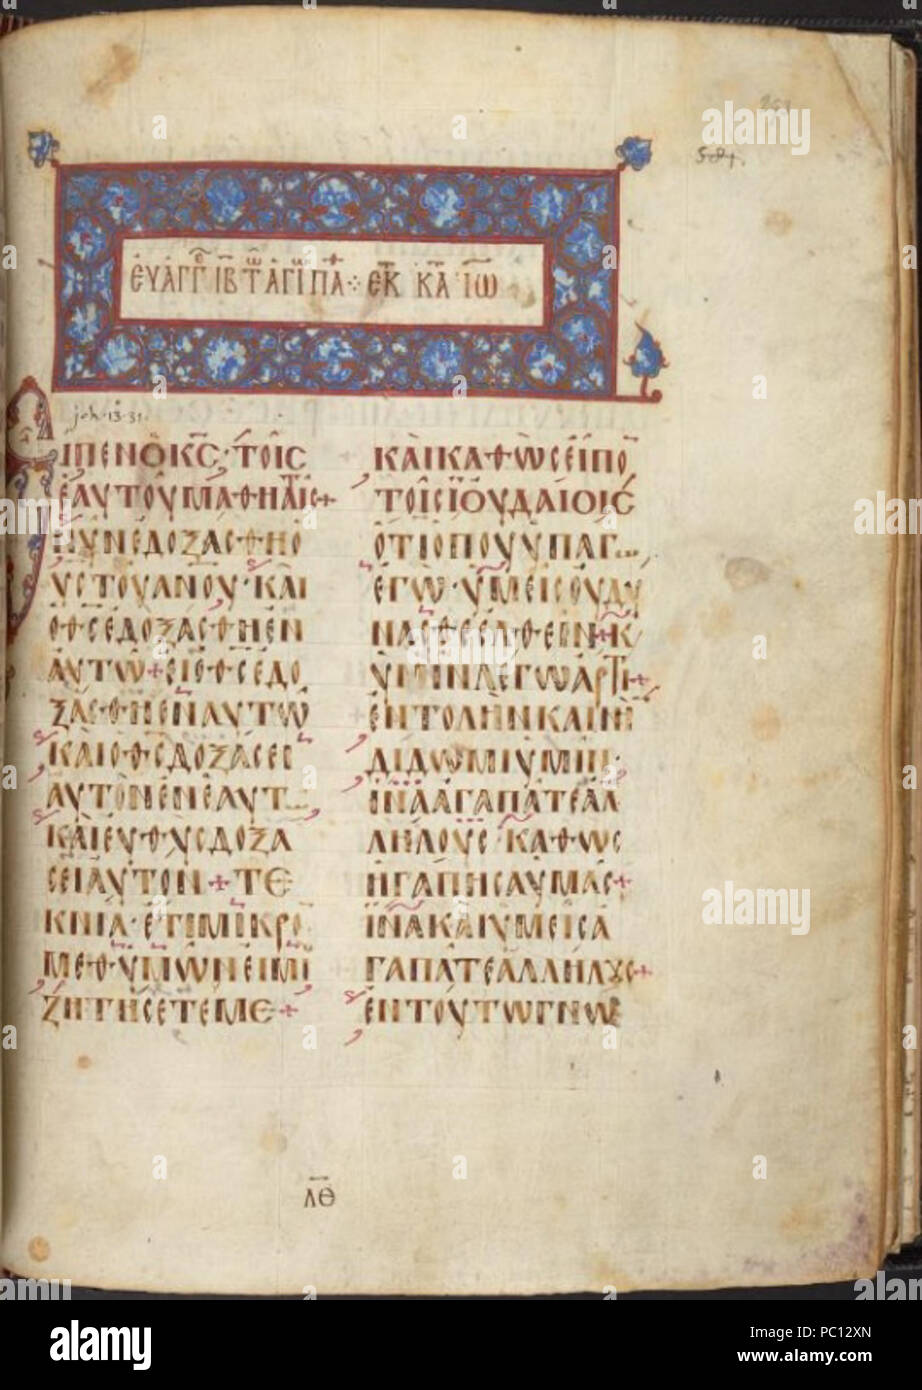 584.
ΕΥΑΓΓ ΙΒ Τ ΑΓΙ ΠΑ ⁘ ΕΚ ΚΑ ΙΩ
joh. 13. 31.
ΕΙΠΕΝ Ο Κ̅Σ̅· ΤΟΙΣ
ΕΑΥΤΟΥ ΜΑΘΗΤΑΙΣ +
ΝΥΝ ΕΔΟΞΑΣΘΗ Ο
Υ̅Σ̅ ΤΟΥ Α̅Ν̅Ο̅Υ̅· ΚΑΙ
Ο Θ̅Σ̅ ΕΔΟΞΑΣΘΗ ΕΝ
ΑΥΤΩ + ΕΙ Ο Θ̅Σ̅ ΕΔΟ
ΞΑΣΘΗ ΕΝ ΑΥΤΩ
ΚΑΙ Ο Θ̅Σ̅ ΔΟΞΑΣΕΙ
ΑΥΤΟΝ ΕΝ ΕΑΥΤ
ΚΑΙ ΕΥΘΥΣ ΔΟΞΑ
ΣΕΙ ΑΥΤΟΝ + ΤΕ
ΚΝΙΑ· ΕΤΙ ΜΙΚΡΟ
ΜΕΘ ΥΜΩΝ ΕΙΜΙ
ΖΗΤΗΣΕΤΕ ΜΕ +
ΚΑΙ ΚΑΘΩΣ ΕΙΠΟ
ΤΟΙΣ ΙΟΥΔΑΙΟΙΣ
ΟΤΙ ΟΠΟΥ ΥΠΑΓ
ΕΓΩ· ΥΜΕΙΣ ΟΥ ΔΥ
ΝΑΣΘΕ ΕΛΘΕΙΝ + Κ
ΥΜΙΝ ΛΕΓΩ ΑΡΤΙ +
ΕΝΤΟΛΗΝ ΚΑΙΝΗ
ΔΙΔΩΜΙ ΥΜΙΝ·
ΙΝΑ ΑΓΑΠΑΤΕ ΑΛ
ΛΗΛΟΥΣ· ΚΑΘΩΣ
ΗΓΑΠΗΣΑ ΥΜΑΣ +
ΙΝΑ ΚΑΙ ΥΜΕΙΣ Α
ΓΑΠΑΤΕ ΑΛΛΗΛΟΥΣ +
ΕΝ ΤΟΥΤΩ ΓΝΩ
ΛΘ
alamy
Image ID: PC12XN
www.alamy.com